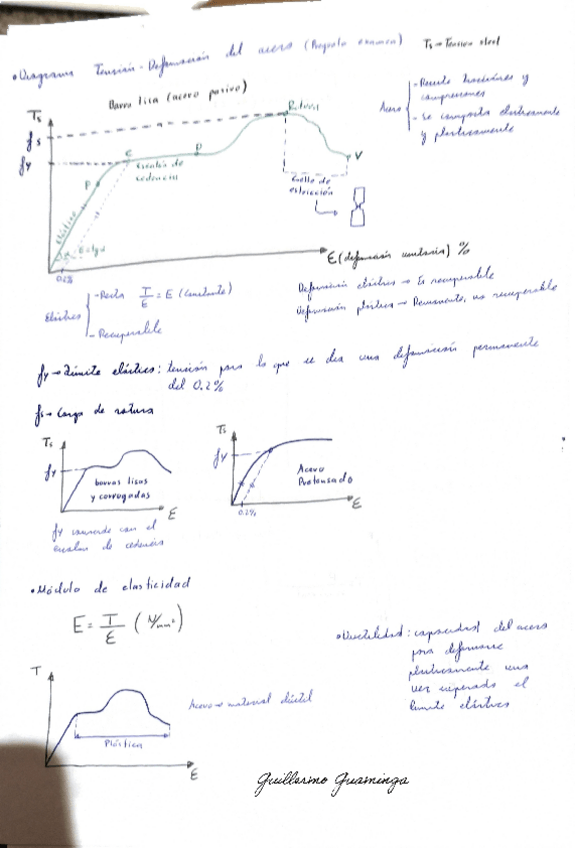 • Diagrama Tensión-Deformación del acero (Pregunta examen)
Ts → Tension steel
Barra lisa (acero pasivo)
Acero
- Resiste tracciones y
compresiones
- Se comporta elásticamente
y plásticamente
Ts
fs
fy
e
P
D
R
V
Escalón de
cedencia
Elástico
E = tgα
Cuello de
estricción
0.2%
Ɛ (deformación unitaria) %
Elástico
- Recta T/Ɛ = E (constante)
- Recuperable
Deformación elástica → Es recuperable
Deformación plástica → Remanente, no recuperable
fy → Límite elástico: tensión para la que se da una deformación permanente
del 0.2%
fs → Carga de rotura
Ts
fy
barras lisas
y corrugadas
Ɛ
fy coincide con el
escalón de cedencia
Ts
fy
Acero
Pretensado
0.2%
Ɛ
• Módulo de elasticidad
E = T/Ɛ (N/mm²)
• Ductilidad: capacidad del acero
para deformarse
plásticamente una
vez superado el
límite elástico
T
Plástica
Ɛ
Acero → material dúctil
Guillermo Guaminga